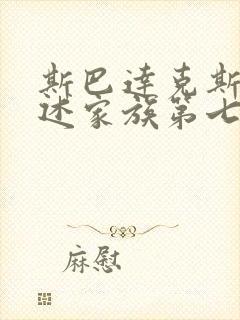 斯巴达克斯
述家族第七
麻慰